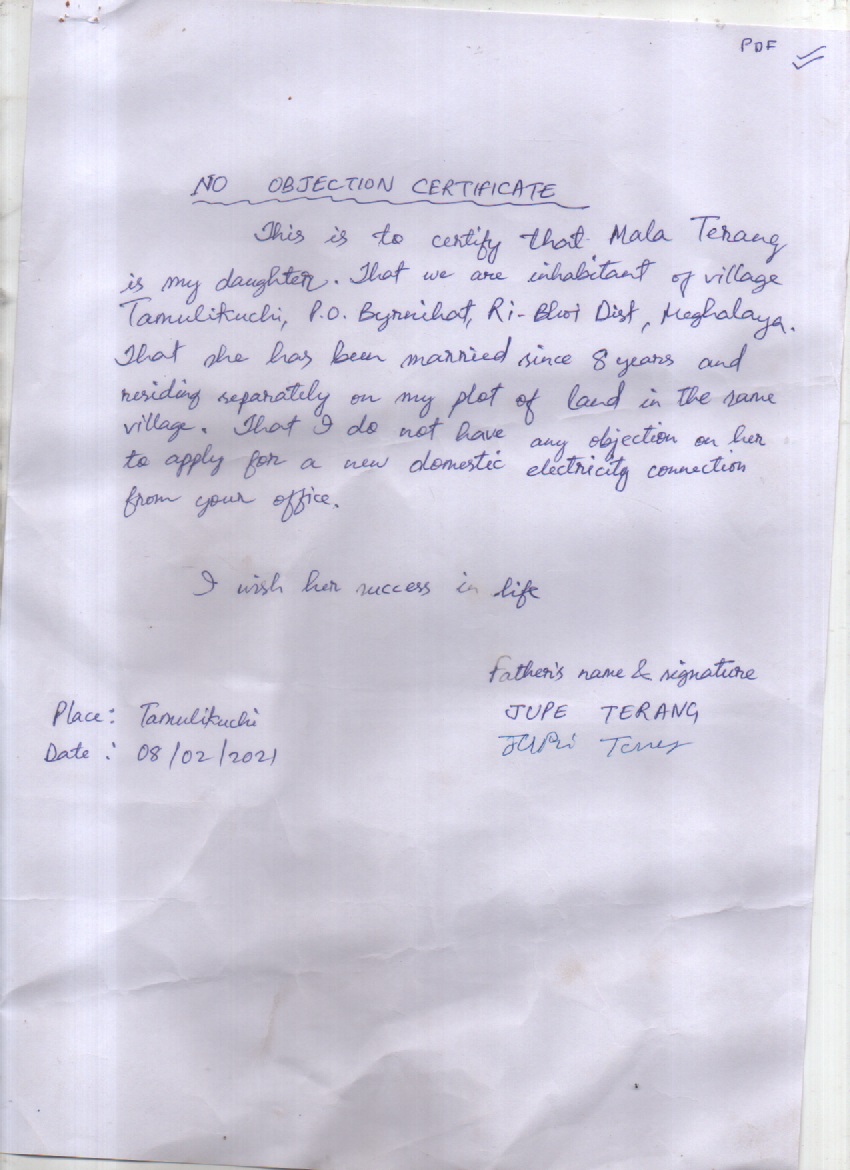 PDF
NO OBJECTION CERTIFICATE
This is to certify that Mala Terang
is my daughter. That we are inhabitant of village
Tamulikuchi, P.O. Byrnihat, Ri-Bhoi Dist, Meghalaya.
That she has been married since 8 years and
residing separately on my plot of land in the same
village. That I do not have any objection on her
to apply for a new domestic electricity connection
from your office.
I wish her success in life
Father's name & signature
Place: Tamulikuchi
JUPE TERANG
Date: 08/02/2021